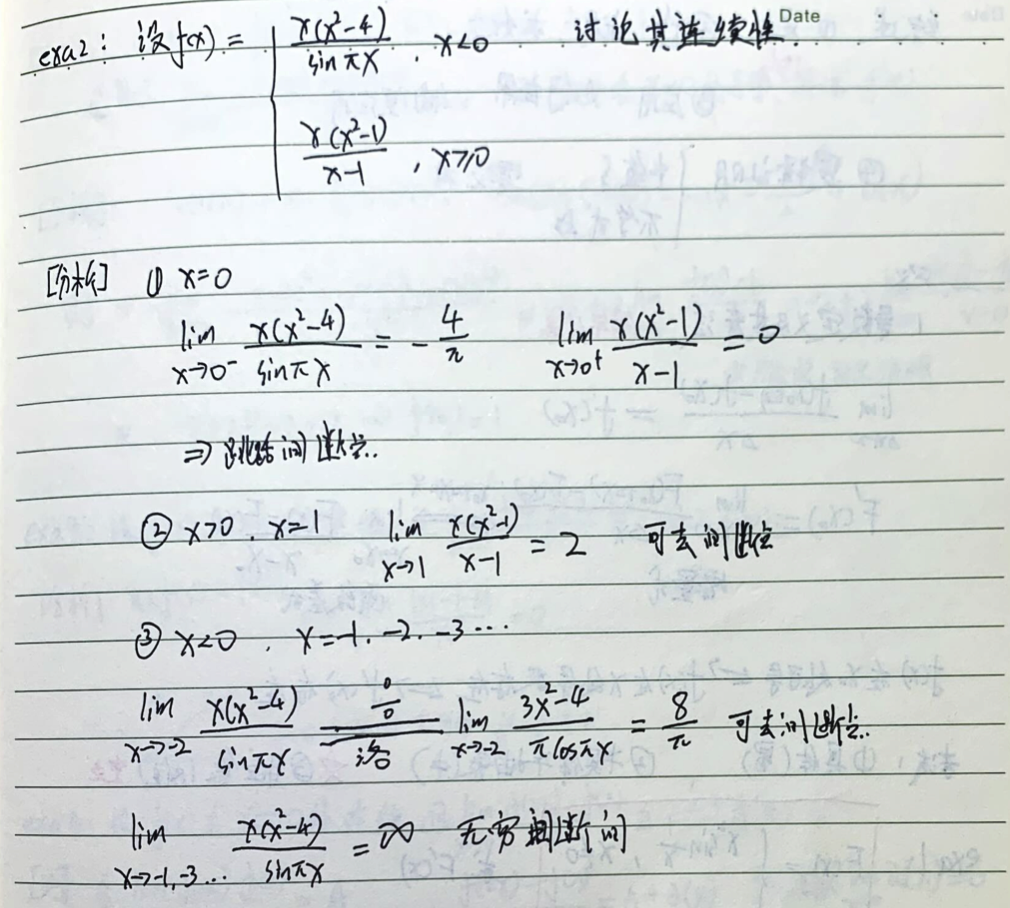 Date
exa2: 设f(x) = { x(x²-4)/sin πx , x<0 讨论其连续性.
x(x²-1)/x-1 , x≥0
[分析] ① x=0
lim x→0⁻ x(x²-4)/sin πx = -4/π lim x→0⁺ x(x²-1)/x-1 = 0
⇒ 跳跃间断点.
② x>0 x=1 lim x→1 x(x²-1)/x-1 = 2 可去间断点
③ x<0 , x=-1, -2, -3 ⋯
lim x→-2 x(x²-4)/sin πx 0/0 洛 lim x→-2 3x²-4/π cos πx = 8/π 可去间断点.
lim x→-1,-3⋯ x(x²-4)/sin πx = ∞ 无穷间断间